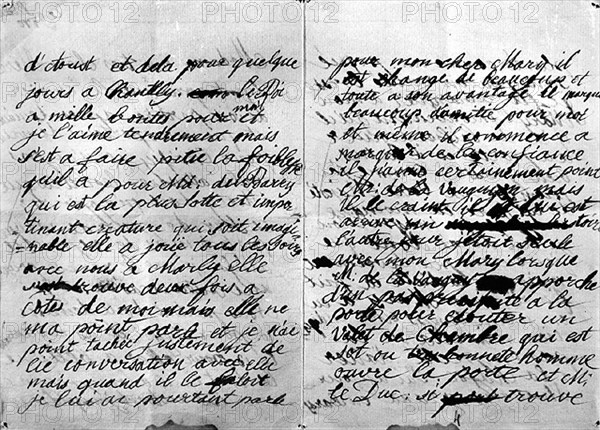 d'toust et dela pour quelque
jours a Chantilly. le Roi
a mille bontes pour moi et
je l'aime tendrement mais
s'est a faire pitie la foiblesse
qu'il a pour Md: du Barry
qui est la plus sotte et impe
tinant creature qui soit imagi
nable elle a joué tous les soirs
avec nous a Marly elle
trouvé deux fois a
cotes de moi mais elle ne
ma point parlé et je n'ai
point taché justement de
lie conversation avec elle
mais quand il le faloit
je lui ai pourtant parle
pour mon cher Mary il
est changé de beaucoup et
toute a son avantage il marque
beaucoup damitie pour moi
et même il commence a
marquer de la confiance
il certainement point
M: de la Vauguion mais
il le craint il lui est
arrive histoir
l'autre jour j'etoit seule
avec mon Mary lorsque
M. de la Vauguion approche
d'un pas précipité a la
porte pour ecouter un
valet de Chambre qui est
sot ou honnete homme
ouvre la porte et M:
le Duc: si trouve
PHOTO12